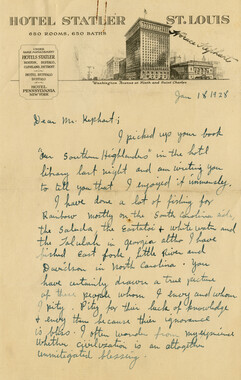 HOTEL STATLER
ST. LOUIS
650 ROOMS, 650 BATHS
HOTELS STATLER
HOTEL
PENNSYLVANIA
NEW YORK
Washington Avenue at Ninth and Saint Charles
Jan 18 1928
Dear Mr. Kephart;
I picked up your book
"Our Southern Highlanders" in the hotel
library last night and am writing you
to tell you that I enjoyed it immensely.
I have done a lot of fishing for
Rainbow mostly on the South Carolina side,
the Saluda, the Eastatoe & white water and
the Talulah in georgia altho I have
fished East fork, Little River and
Davidson in North Carolina. You
have certainly drawn a true picture
of these people whom I envy and whom
I pity. Pity for their lack of knowledge
& envy them because their ignorance
is bliss. I often wonder from my experience
whether civilization is an altogether
unmitigated blessing.